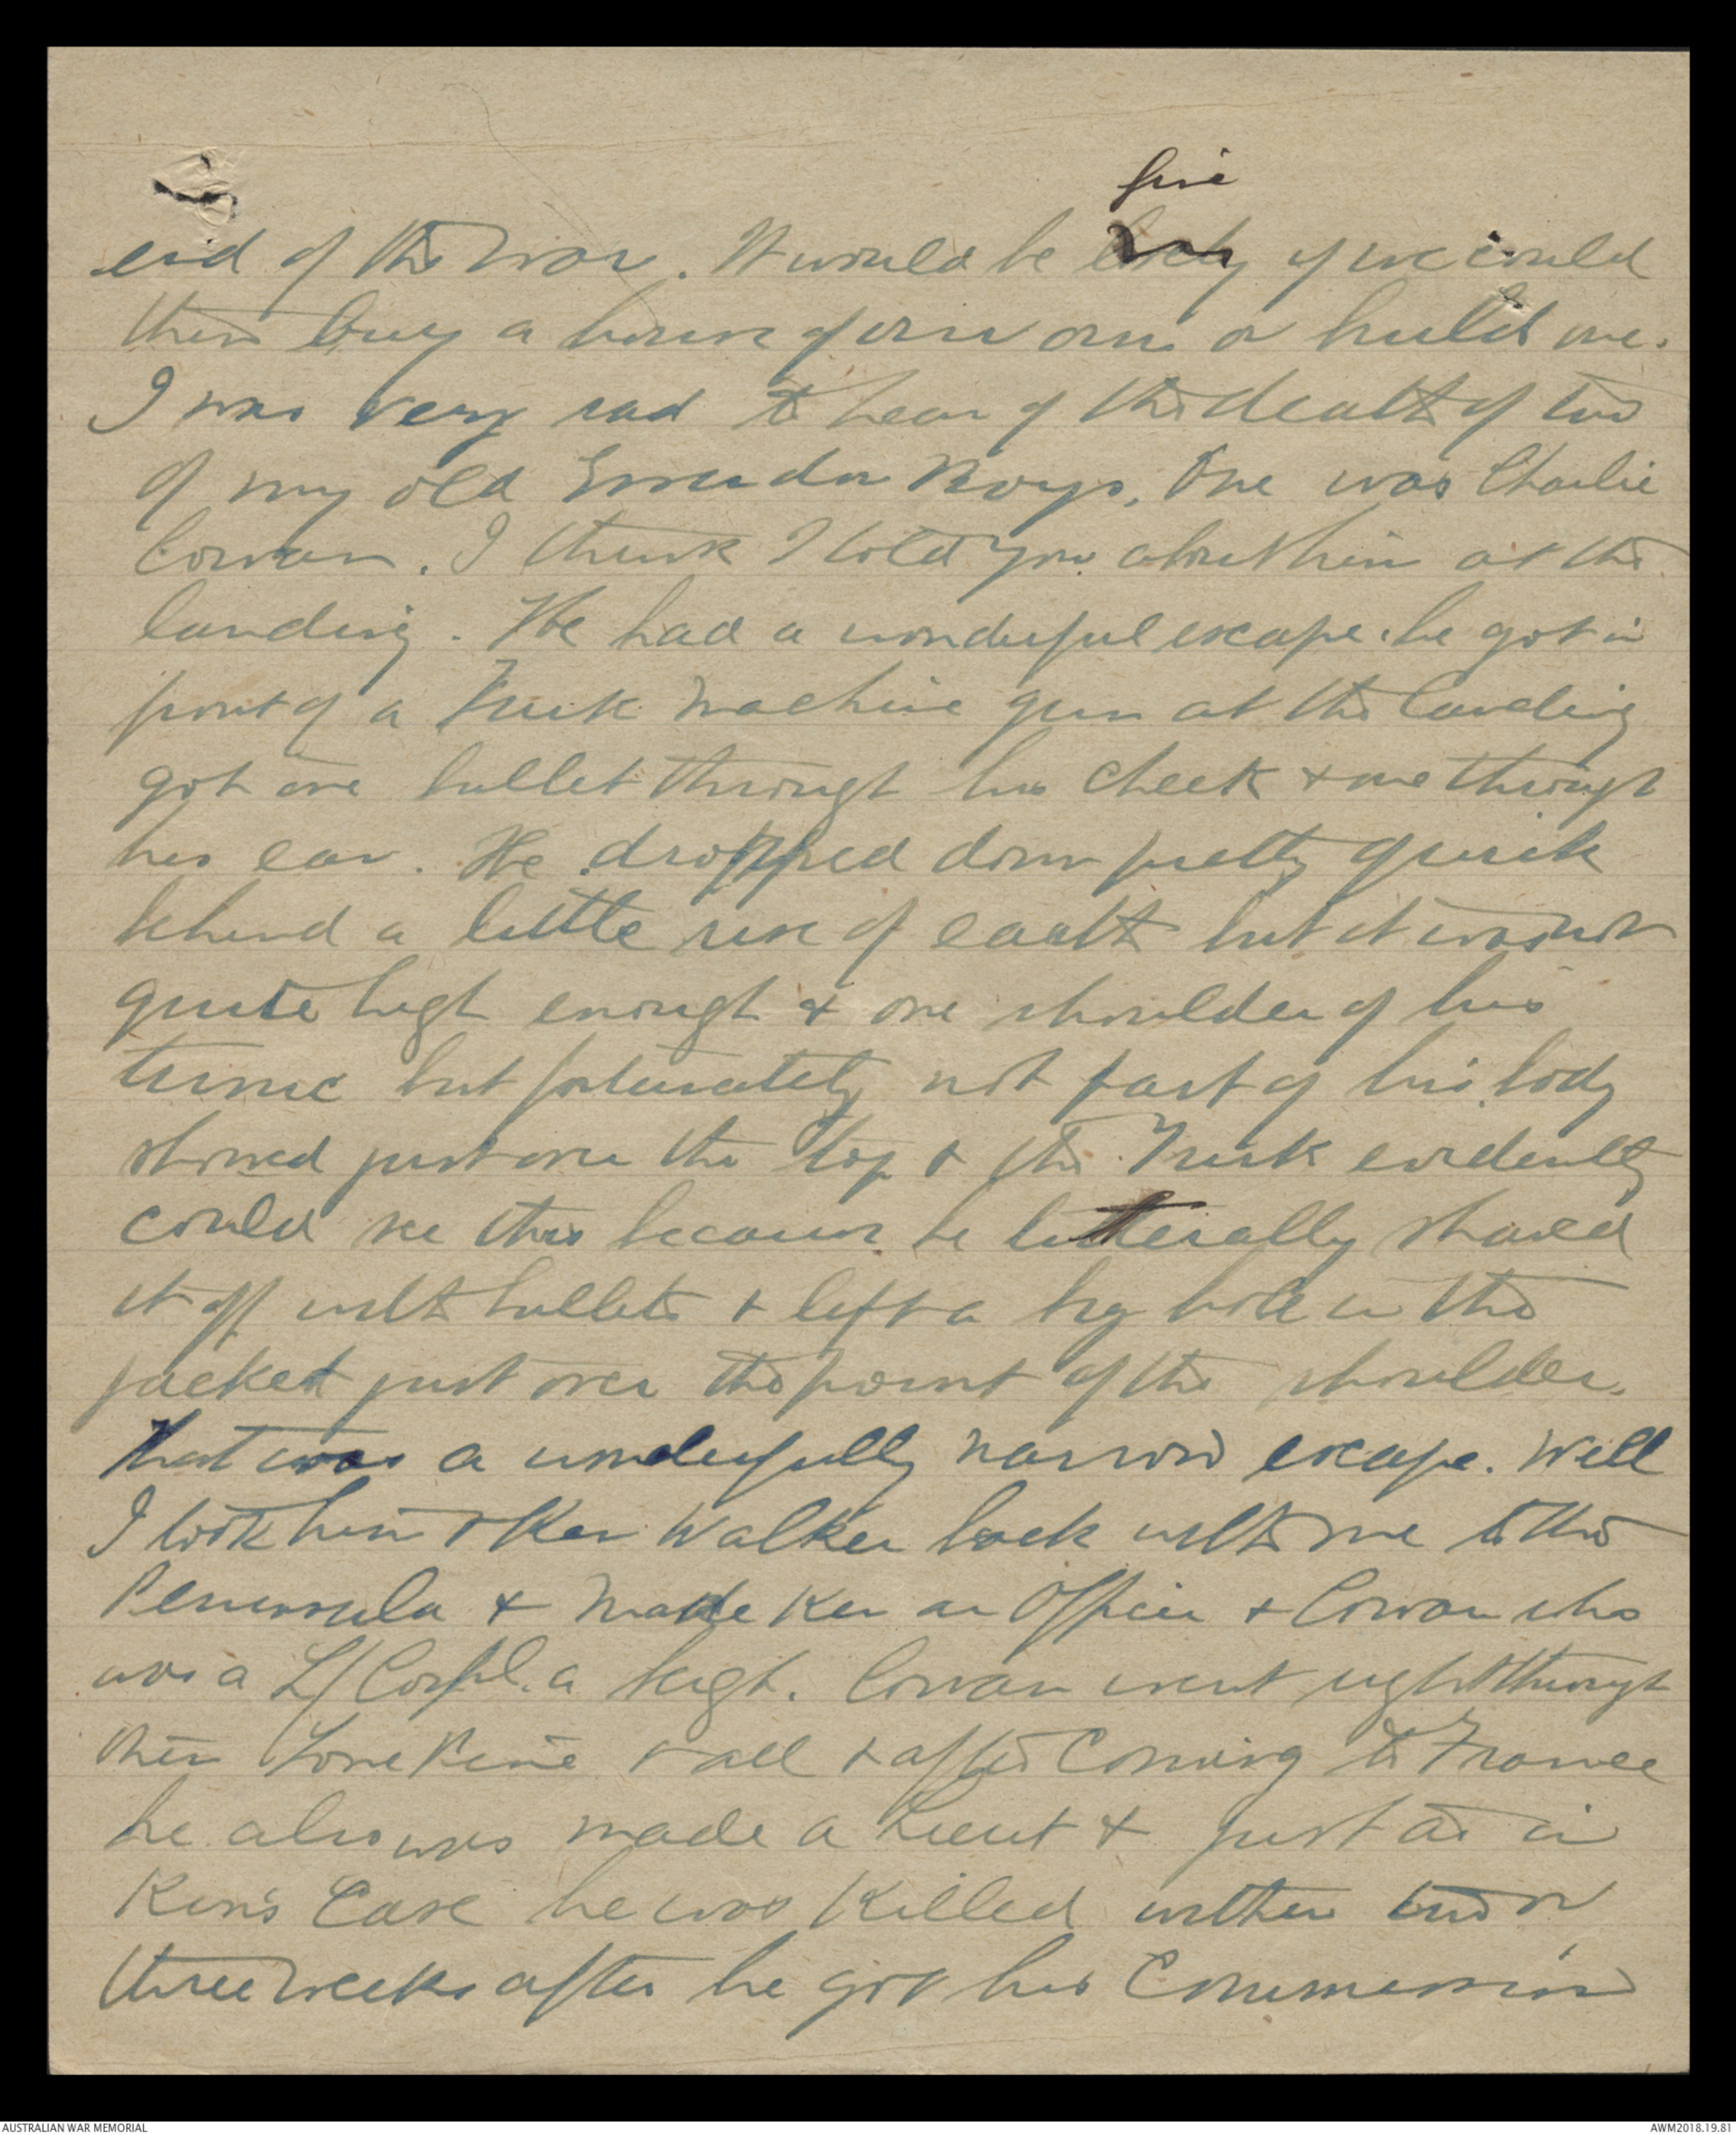 fine
end of the war. It would be lovely if we could
then buy a house of our own or build one.
I was very sad to hear of the death of two
of my old Essendon Boys. One was Charlie
Cowan. I think I told you about him at the
landing. He had a wonderful escape. he got in
front of a Turk machine gun at the landing
got one bullet through his cheek & one through
his ear. He dropped down pretty quick
behind a little rise of earth but it was not
quite high enough & one shoulder of his
tunic but fortunately not part of his body
showed just over the top & the Turk evidently
could see this because he litterally shaved
it off with bullets & left a big hole in the
jacket just over the point of the shoulder.
That was a wonderfully narrow escape. Well
I took him & Ken Walker back with me to the
Peninsula & made Ken an Officer & Cowan who
was a L/Corpl. a Sergt. Cowan went right through
then Lone Pine & all & after Coming to France
he also was made a Lieut & just as in
Ken's Case he was Killed within two or
three weeks after he got his Commission
AUSTRALIAN WAR MEMORIAL
AWM2018.19.81